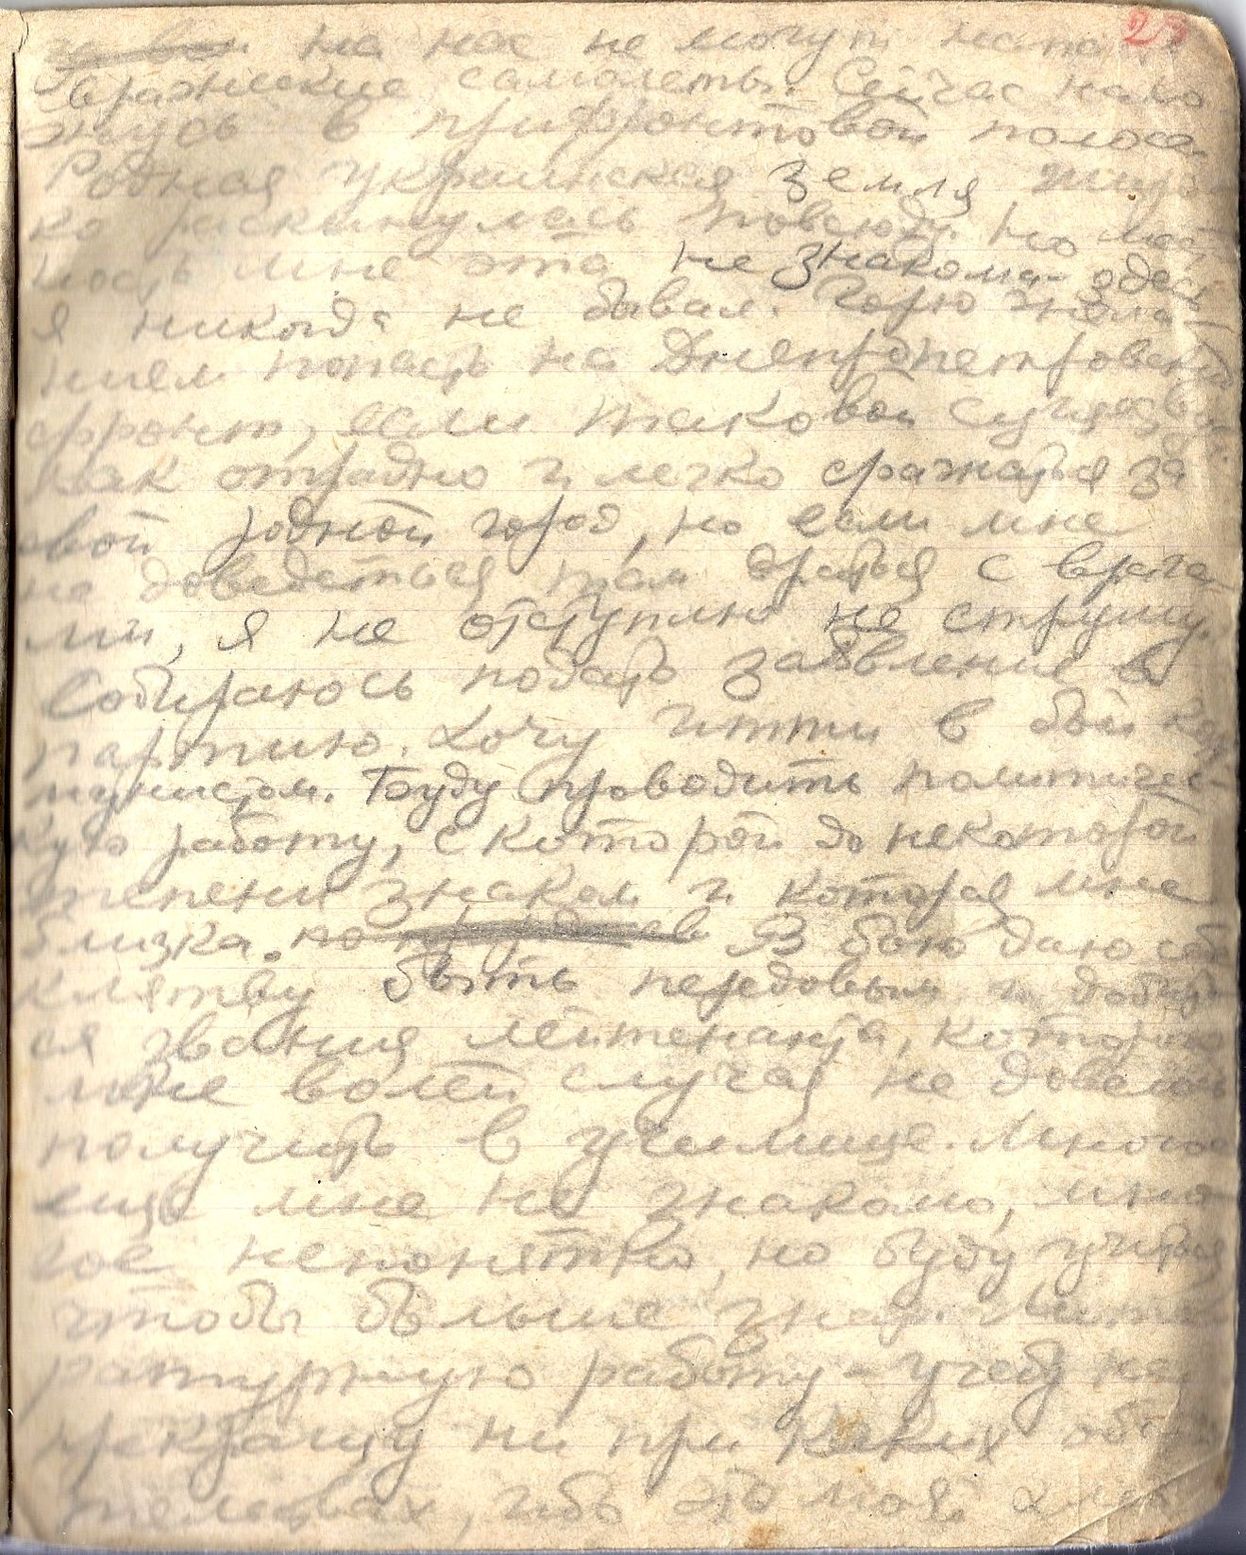 25
на нас не могут напа
вражеские самолеты. Сейчас нахо
жусь в прифронтовой полосе.
Родная украинская земля широ
ко раскинулась повсюду. Но мест
ность мне эта не знакома - здесь
я никогда не бывал. Горю жела
нием попасть на Днепропетровский
фронт, если таковой существует.
Как отрадно и легко сражаться за
свой родной город, но если мне
не доведеться там драться с врага
ми, я не отступлю не струшу.
Собираюсь подать заявление в
партию. Хочу итти в бой ком
мунистом. Буду проводить политичес-
кую работу, с которой до некоторой
степени знаком и которая мне
близка. В бою даю себе
клятву быть передовым и добить
ся звания лейтенанта, которого
мне волей случая не довелось
получить в училище. Многое
еще мне не знакомо, мно-
гое непонятно, но буду учиться
чтобы больше знать. Лите
ратурную работу - учебу не
прекращу ни при каких обс
тельствах, ибо это мой хлеб